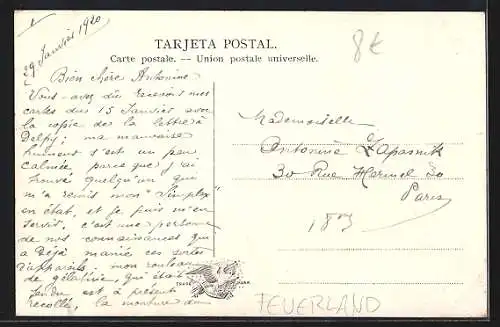 29 Janvier 1920
TARJETA POSTAL.
8€
Carte postale. — Union postale universelle.
Bien chère Antonine
Vous avez dû recevoir mes
cartes du 15 Janvier avec
la copie de la lettre à
Delpy; ma mauvaise
humeur s'est un peu
calmée parce que j'ai
trouvé quelqu'un qui
m'a remis mon "Simplex"
en état, et je puis m'en
servir, c'est une personne
de nos connaissances qui
a déjà maniée ces sortes
d'appareils. mon rouleau
de gélatine, qui était
fendu est à présent
recollé, la monture du
Mademoiselle
Antonine
30 Rue Hermel 30
Paris
18e
TRADE MARK
FEUERLAND